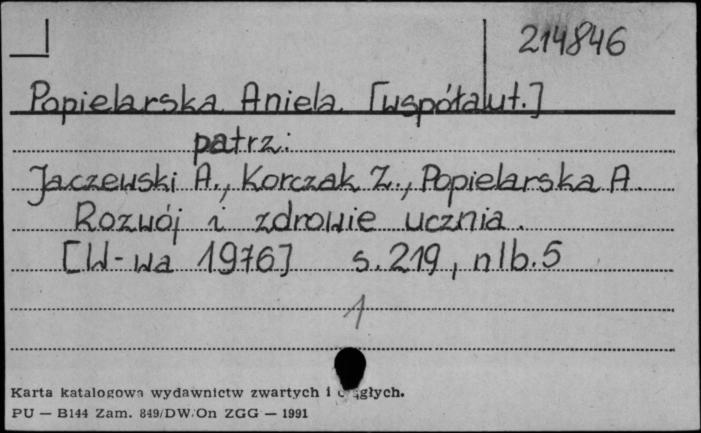 214846
Popielarska Aniela [współaut.]
patrz:
Jaczewski A., Korczak Z., Popielarska A.
Rozwój i zdrowie ucznia.
[W-wa 1976] s. 219, nlb. 5
1
Karta katalogowa wydawnictw zwartych i ciągłych.
PU — B144 Zam. 849/DW/On ZGG — 1991